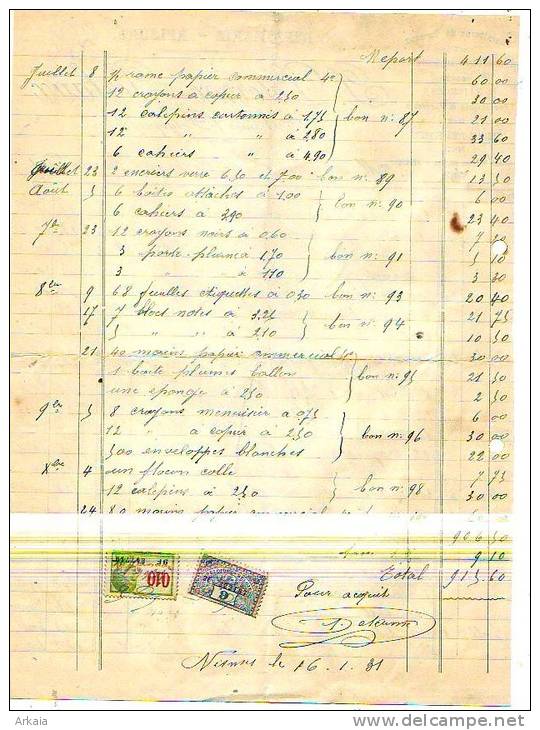 Report 411 60
Juillet 8 ½ rame papier commercial 4c 60 00
12 crayons à copier à 2,50 30 00
12 calepins cartonnés à 1,75 bon n: 87 21 00
12 " " à 2,80 33 60
6 cahiers " à 4,90 29 40
Juillet 23 2 encriers verre 6,50 et 7,00 bon n: 89 13 50
Août 5 6 boites attaches à 1,00 bon n: 90 6 00
6 cahiers à 3,90 23 40
7bre 23 12 crayons noirs à 0,60 7 20
3 porte-plume à 1,70 bon n: 91 5 10
3 " à 1,10 3 30
8bre 9 68 feuilles étiquettes à 0,30 bon n: 93 20 40
17 7 blocs notes à 3,25 bon n: 94 21 75
5 " " à 2,10 10 50
21 40 mains papier commercial 30 00
1 boite plumes ballon bon n: 95 21 50
une éponge à 2,50 2 50
9bre 5 8 crayons menuisier à 0,75 6 00
12 " à copier à 2,50 bon n: 96 30 00
500 enveloppes blanches 22 00
Xbre 4 un flacon colle 7 75
12 calepins à 2,50 bon n: 98 30 00
24 80 mains papier
906 50
9 10
Total 915 60
010
6
Pour acquit
le 16.1.31
Arkaia
www.delcampe.net